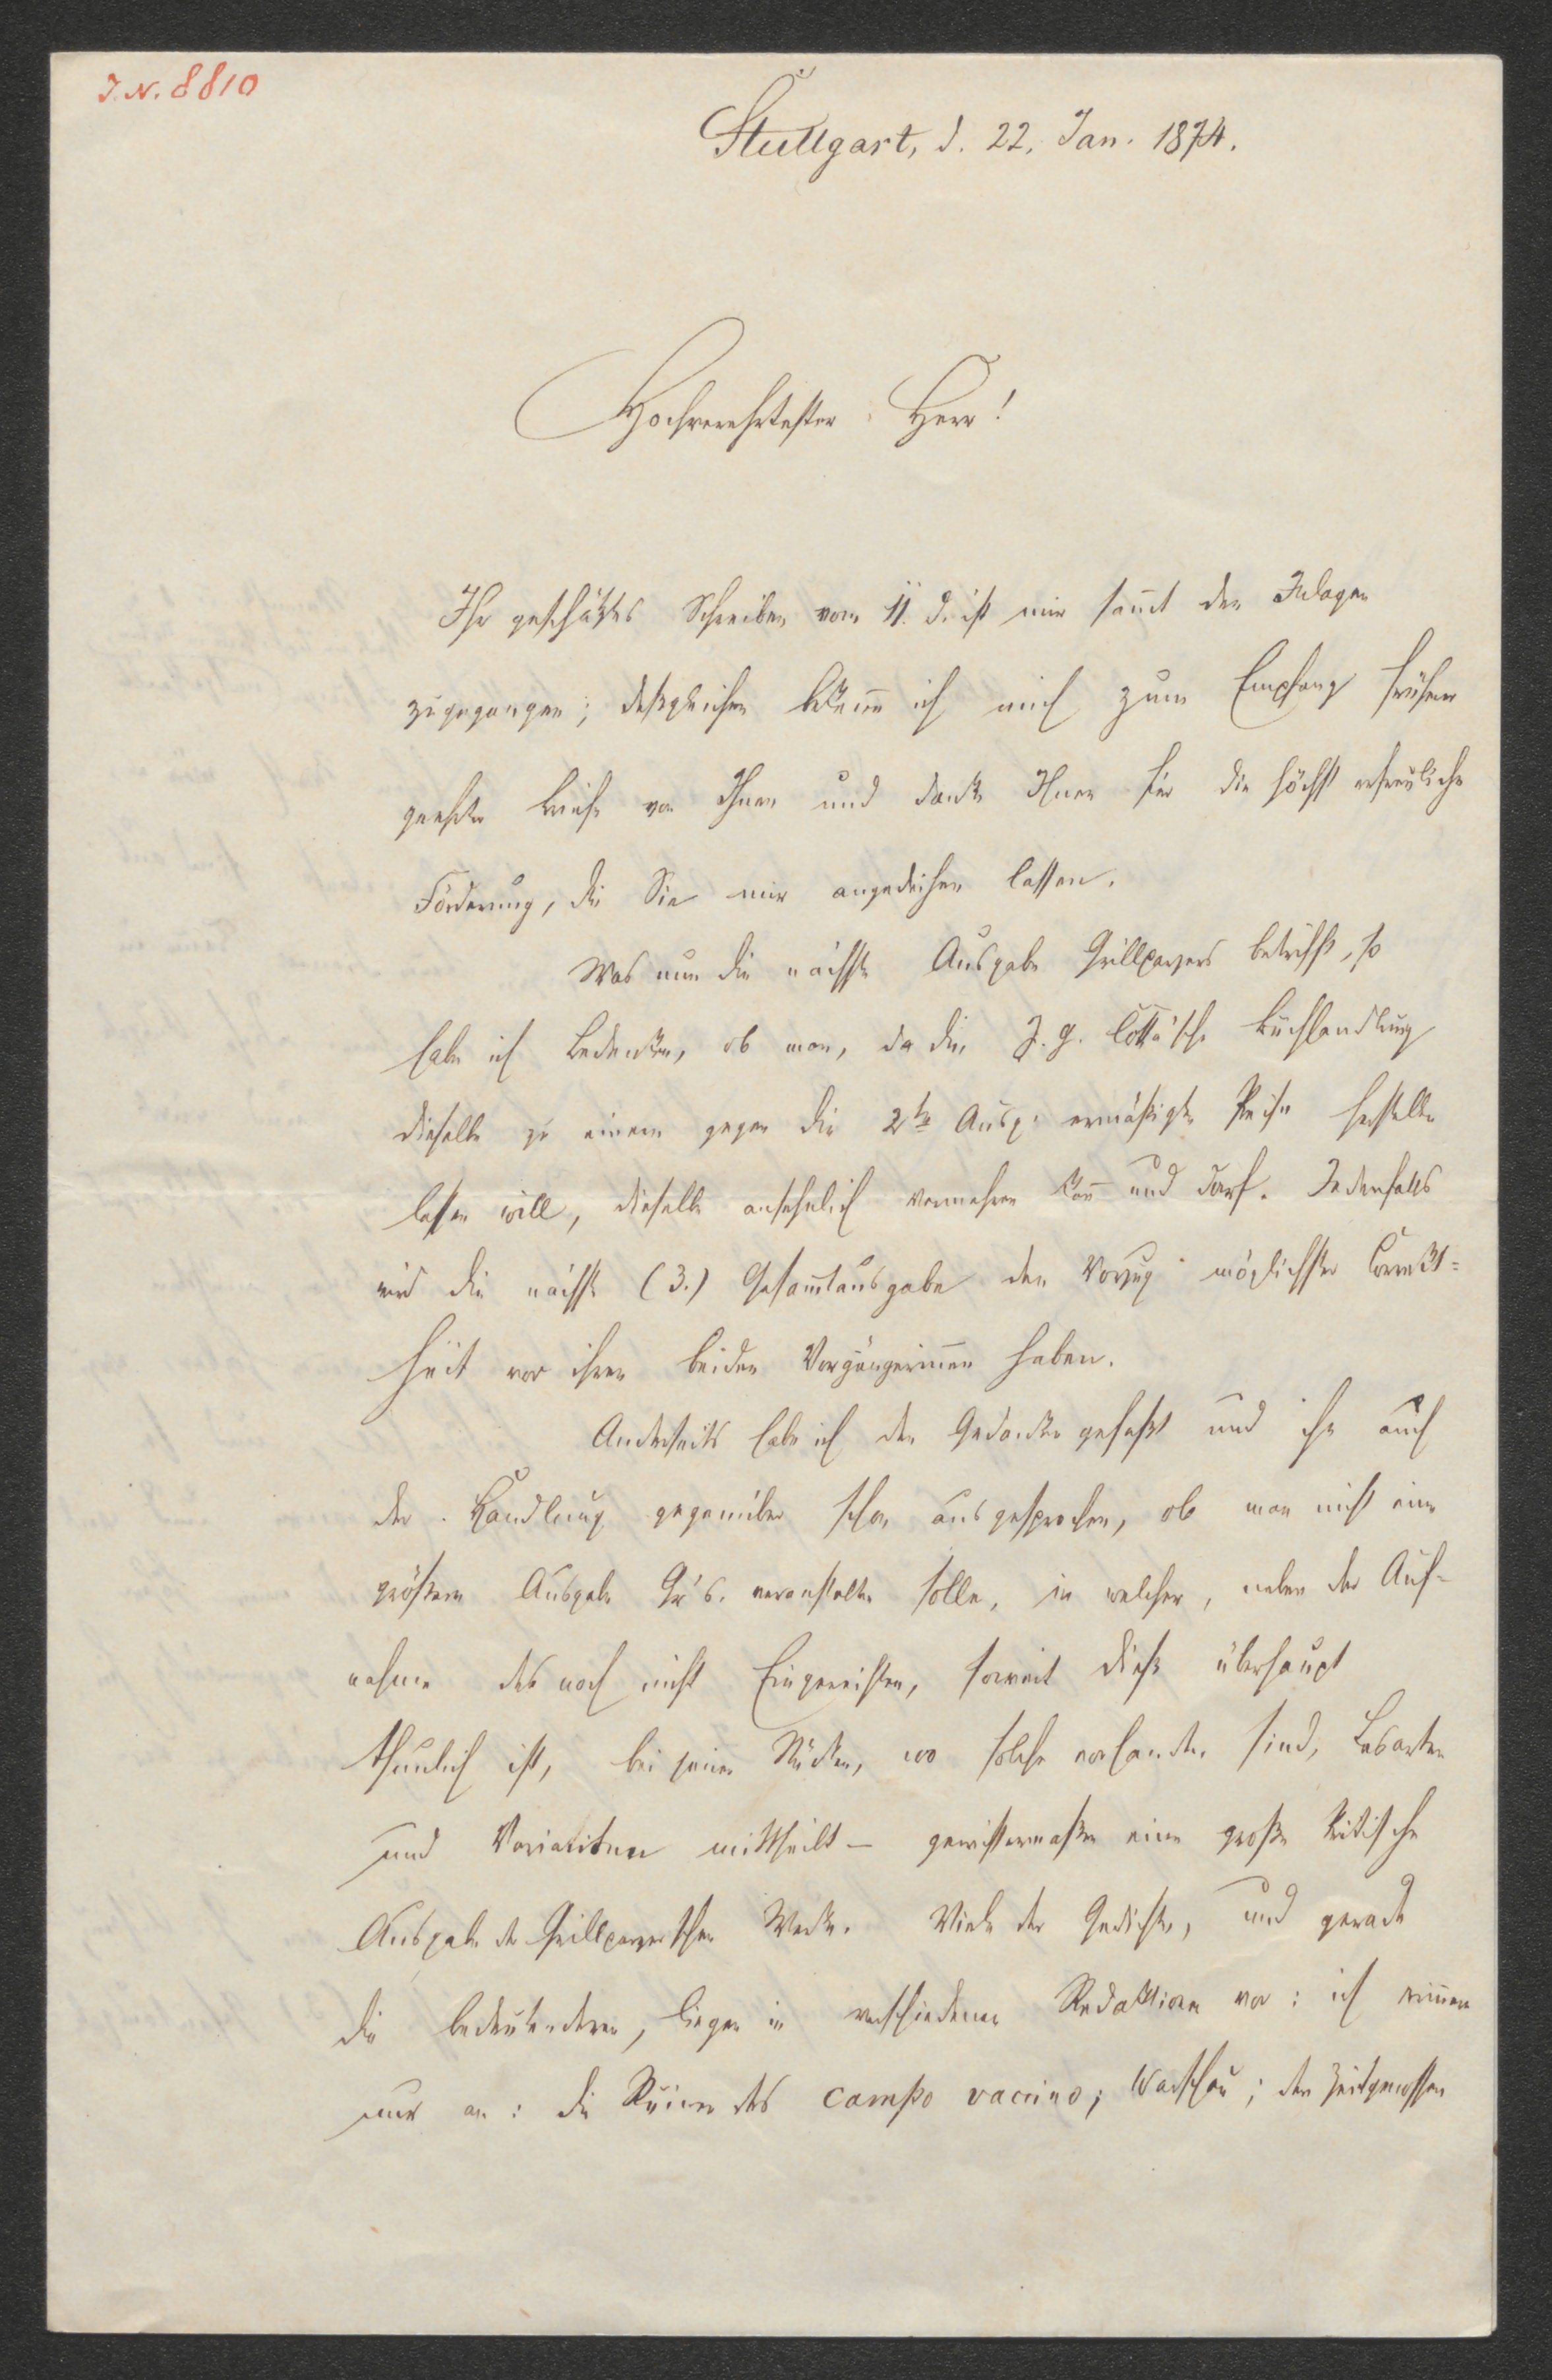 J. N. 8810
Stuttgart, d. 22. Jan. 1874.
Hochverehrtester Herr!
Ihr geschätztes Schreiben vom 11. d. ist mir sam̄t den Inlagen
zugegangen; deßgleichen beken̄e ich mich zum Empfang früherer
geehrter Briefe von Ihnen und danke Ihnen für die höchst erfreuliche
Förderung, die Sie mir angedeihen lassen.
Was nun die nächste Ausgabe Grillparzers betrifft, so
habe ich Bedenken, ob man, da die J. G. Cotta'sche Buchhandlung
dieselbe zu einem gegen die 2te Ausg. ermäßigten Preise herstellen
lassen will, dieselbe ansehnlich vermehren kan̄ und darf. Jedenfalls
wird die nächste (3.) Gesam̄tausgabe den Vorzug möglichster Correkt=
heit vor ihren beiden Vorgängerin̄en haben.
Anderseits habe ich den Gedanken gefaßt und ihn auch
der Handlung gegenüber schon ausgesprochen, ob man nicht eine
größere Ausgabe Gr's. veranstalten solle, in welcher, neben der Auf=
nahme des noch nicht Eingereihten, soweit dieß überhaupt
thunlich ist, bei jenen Stücken, wo solche vorhanden sind, Lesarten
und Varianten mittheilt – gewissermaßen eine große kritische
Ausgabe der Grillparzer'schen Werke. Viele der Gedichte, und gerade
die bedeutenderen, liegen in verschiedenen Redaktionen vor: ich erin̄ere
nur an: die Ruinen des campo vaccino; Warschau; den Zeitgenossen